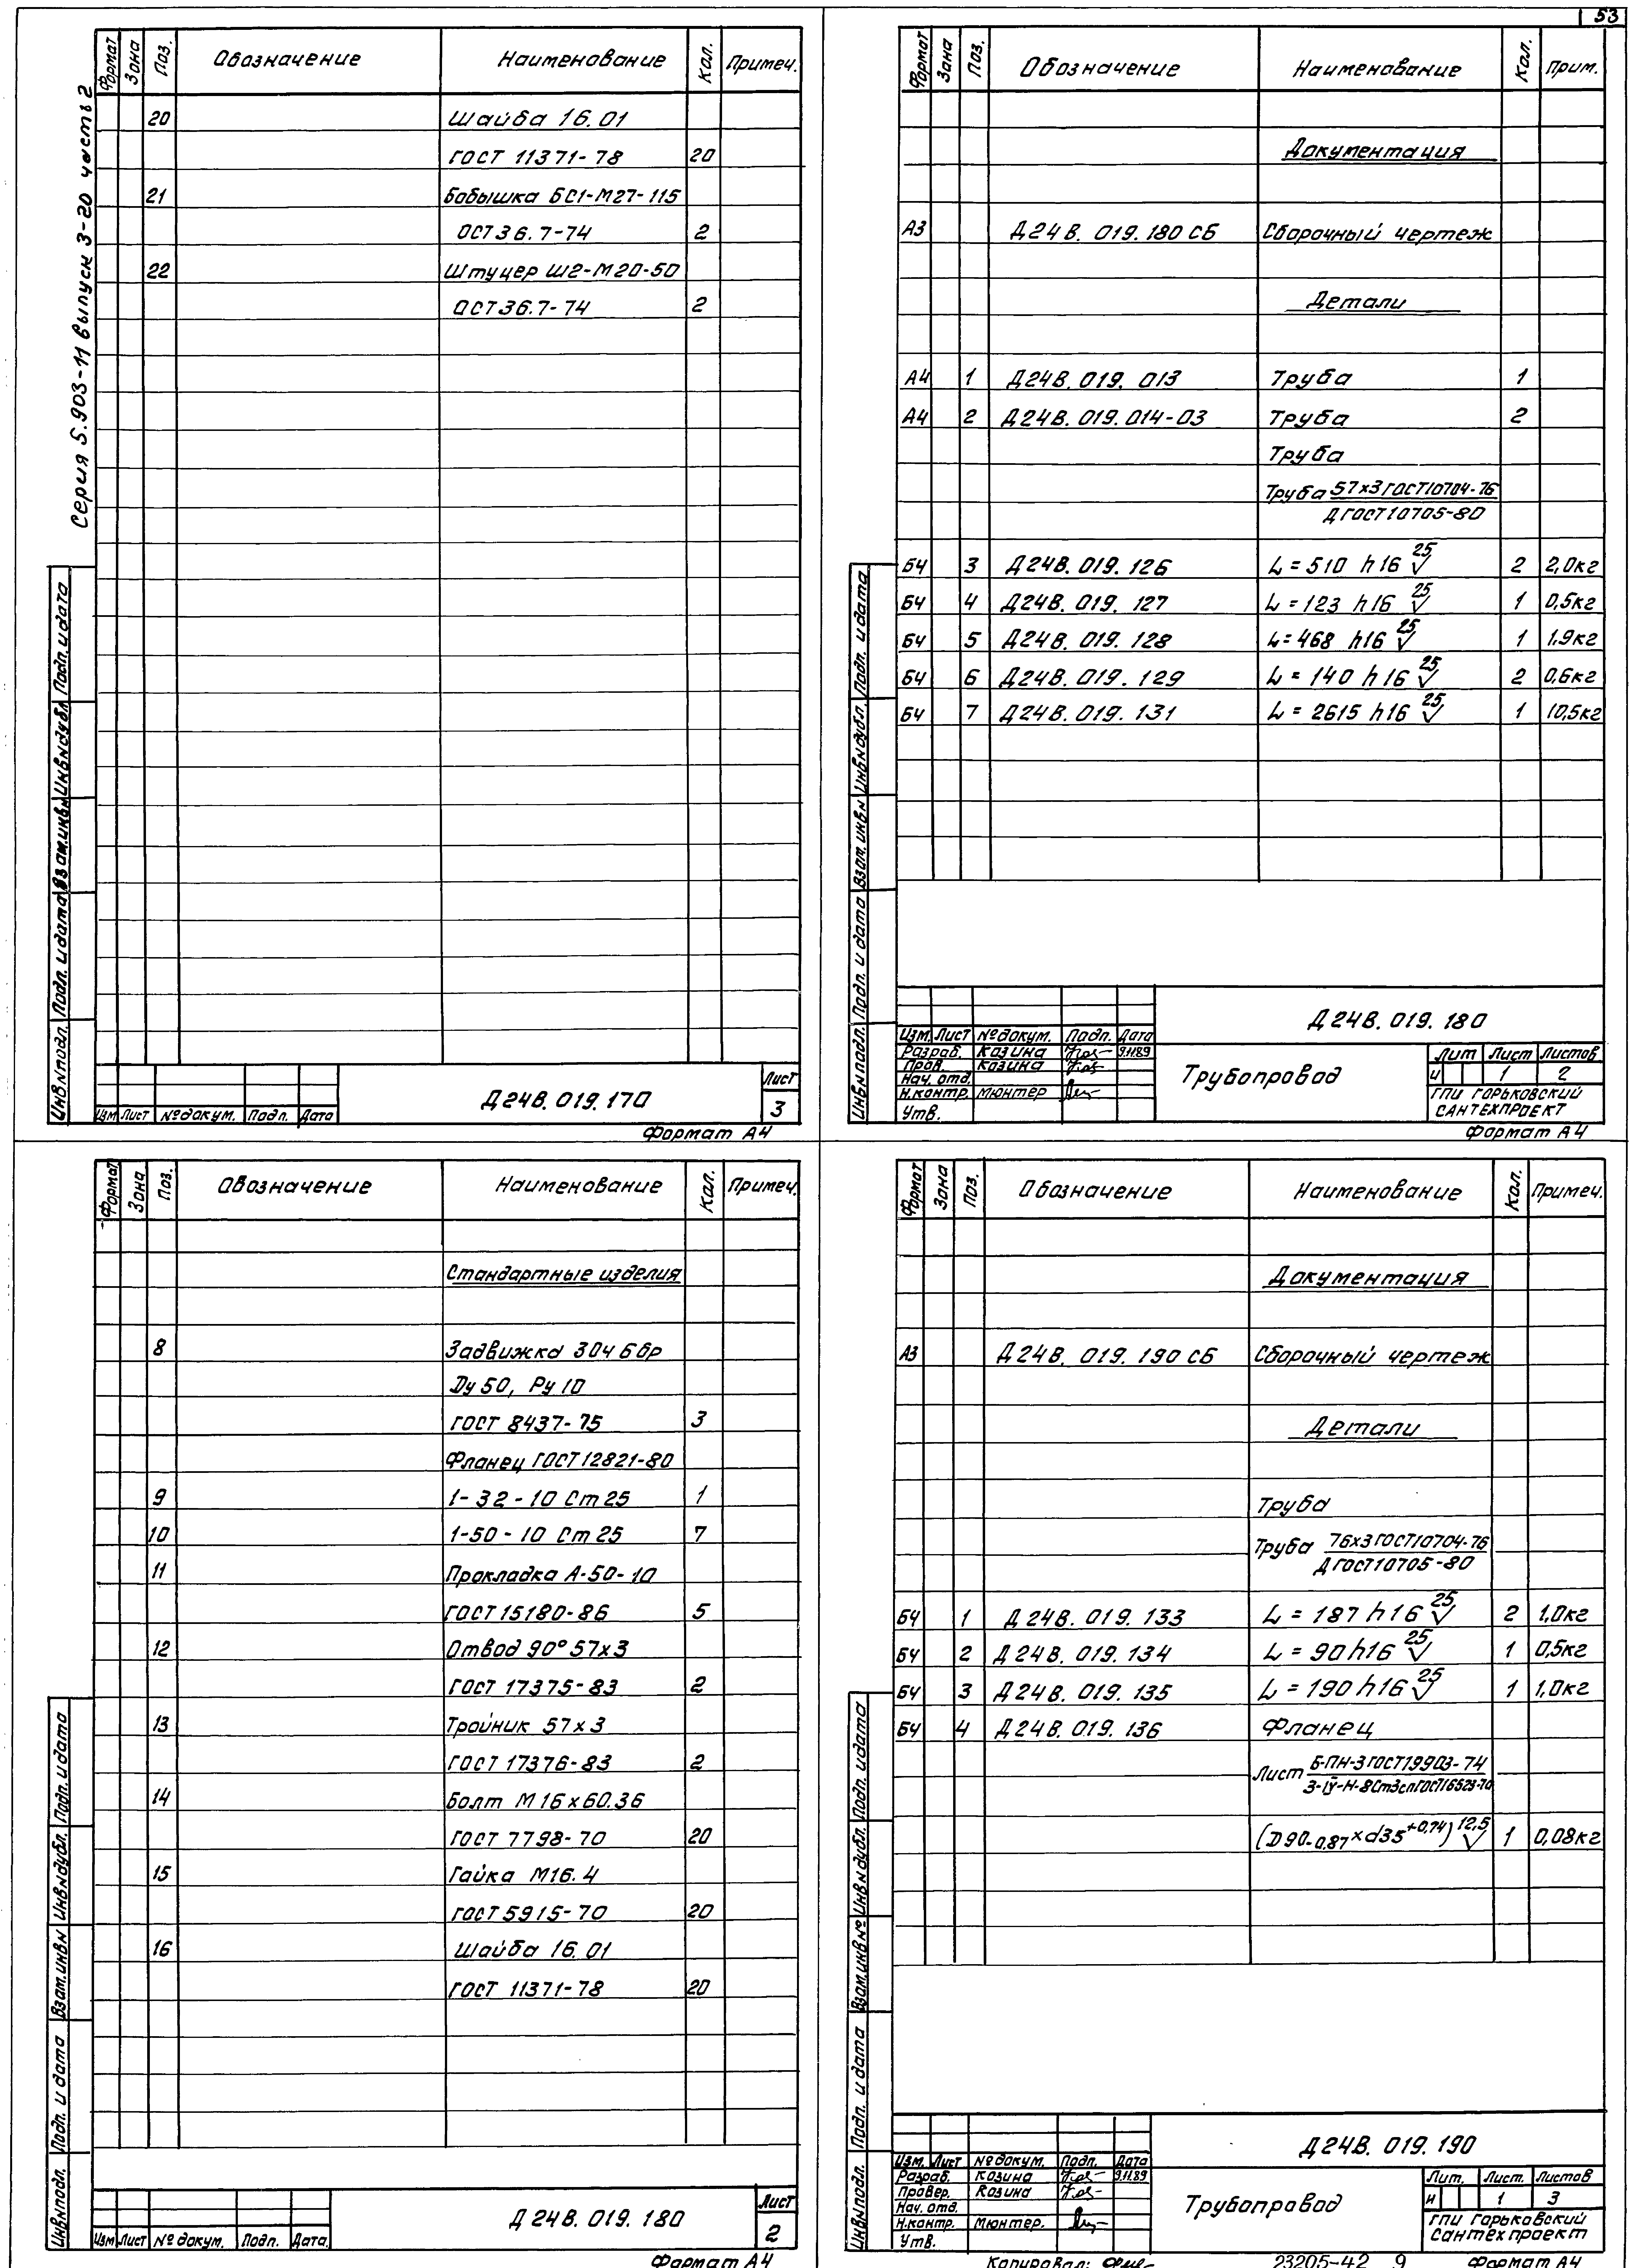 53
Серия 5.903-11 выпуск 3-20 часть 2
Формат Зона Поз. Обозначение Наименование Кол. Примеч.
20 Шайба 16.01
ГОСТ 11371-78 20
21 Бобышка БС1-М27-115
ОСТ36.7-74 2
22 Штуцер Ш2-М20-50
ОСТ36.7-74 2
Инв.№подл. Подп. и дата Взам.инв.№ Инв.№дубл. Подп. и дата
Изм Лист №докум. Подп. Дата
Д24В.019.170
Лист
3
Формат А4
Формат Зона Поз. Обозначение Наименование Кол. Прим.
Документация
А3 Д24В.019.180 СБ Сборочный чертеж
Детали
А4 1 Д24В.019.013 Труба 1
А4 2 Д24В.019.014-03 Труба 2
Труба
Труба 57х3 ГОСТ10704-76
Д ГОСТ10705-80
БЧ 3 Д24В.019.126 L=510 h16 25 2 2,0кг
БЧ 4 Д24В.019.127 L=123 h16 25 1 0,5кг
БЧ 5 Д24В.019.128 L=468 h16 25 1 1,9кг
БЧ 6 Д24В.019.129 L=140 h16 25 2 0,6кг
БЧ 7 Д24В.019.131 L=2615 h16 25 1 10,5кг
Инв.№подл. Подп. и дата Взам.инв.№ Инв.№дубл. Подп. и дата
Д24В.019.180
Изм. Лист №докум. Подп. Дата
Разраб. Козина 9.11.89
Пров. Козина
Нач. отд.
Н.контр. Мюнтер
Утв.
Трубопровод
Лит Лист Листов
И 1 2
ГПИ ГОРЬКОВСКИЙ
САНТЕХПРОЕКТ
Формат А4
Формат Зона Поз. Обозначение Наименование Кол. Примеч.
Стандартные изделия
8 Задвижка 30ч6бр
Dу 50, Ру 10
ГОСТ 8437-75 3
Фланец ГОСТ12821-80
9 1-32-10 Ст25 1
10 1-50-10 Ст25 7
11 Прокладка А-50-10
ГОСТ15180-86 5
12 Отвод 90° 57х3
ГОСТ 17375-83 2
13 Тройник 57х3
ГОСТ 17376-83 2
14 Болт М16х60.36
ГОСТ 7798-70 20
15 Гайка М16.4
ГОСТ5915-70 20
16 Шайба 16.01
ГОСТ 11371-78 20
Инв.№подл. Подп. и дата Взам.инв.№ Инв.№дубл. Подп. и дата
Изм Лист №докум. Подп. Дата.
Д24В.019.180
Лист
2
Формат А4
Формат Зона Поз. Обозначение Наименование Кол. Примеч.
Документация
А3 Д24В.019.190 СБ Сборочный чертеж
Детали
Труба
Труба 76х3 ГОСТ10704-76
Д ГОСТ10705-80
БЧ 1 Д24В.019.133 L=187 h16 25 2 1,0кг
БЧ 2 Д24В.019.134 L=90 h16 25 1 0,5кг
БЧ 3 Д24В.019.135 L=190 h16 25 1 1,0кг
БЧ 4 Д24В.019.136 Фланец
Лист Б-ПН-3 ГОСТ19903-74
3-IV-Н-8Ст3сп ГОСТ16523-70
(D90-0,87 х d35+0,74) 12,5 1 0,08кг
Инв.№подл. Подп. и дата Взам.инв.№ Инв.№дубл. Подп. и дата
Д24В.019.190
Изм. Лист №докум. Подп. Дата
Разраб. Козина 9.11.89
Провер. Козина
Нач. отд.
Н.контр. Мюнтер.
Утв.
Трубопровод
Лит. Лист. Листов
И 1 3
ГПИ Горьковский
Сантехпроект
Копировал: 23205-42 9 Формат А4